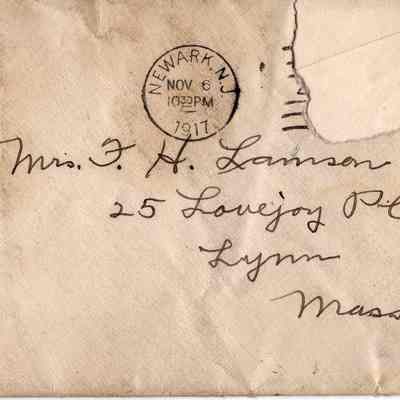 NEWARK, N.J.
NOV 6
1030PM
1917
Mrs. F. H. Lamson
25 Lovejoy Pl
Lynn
Mass